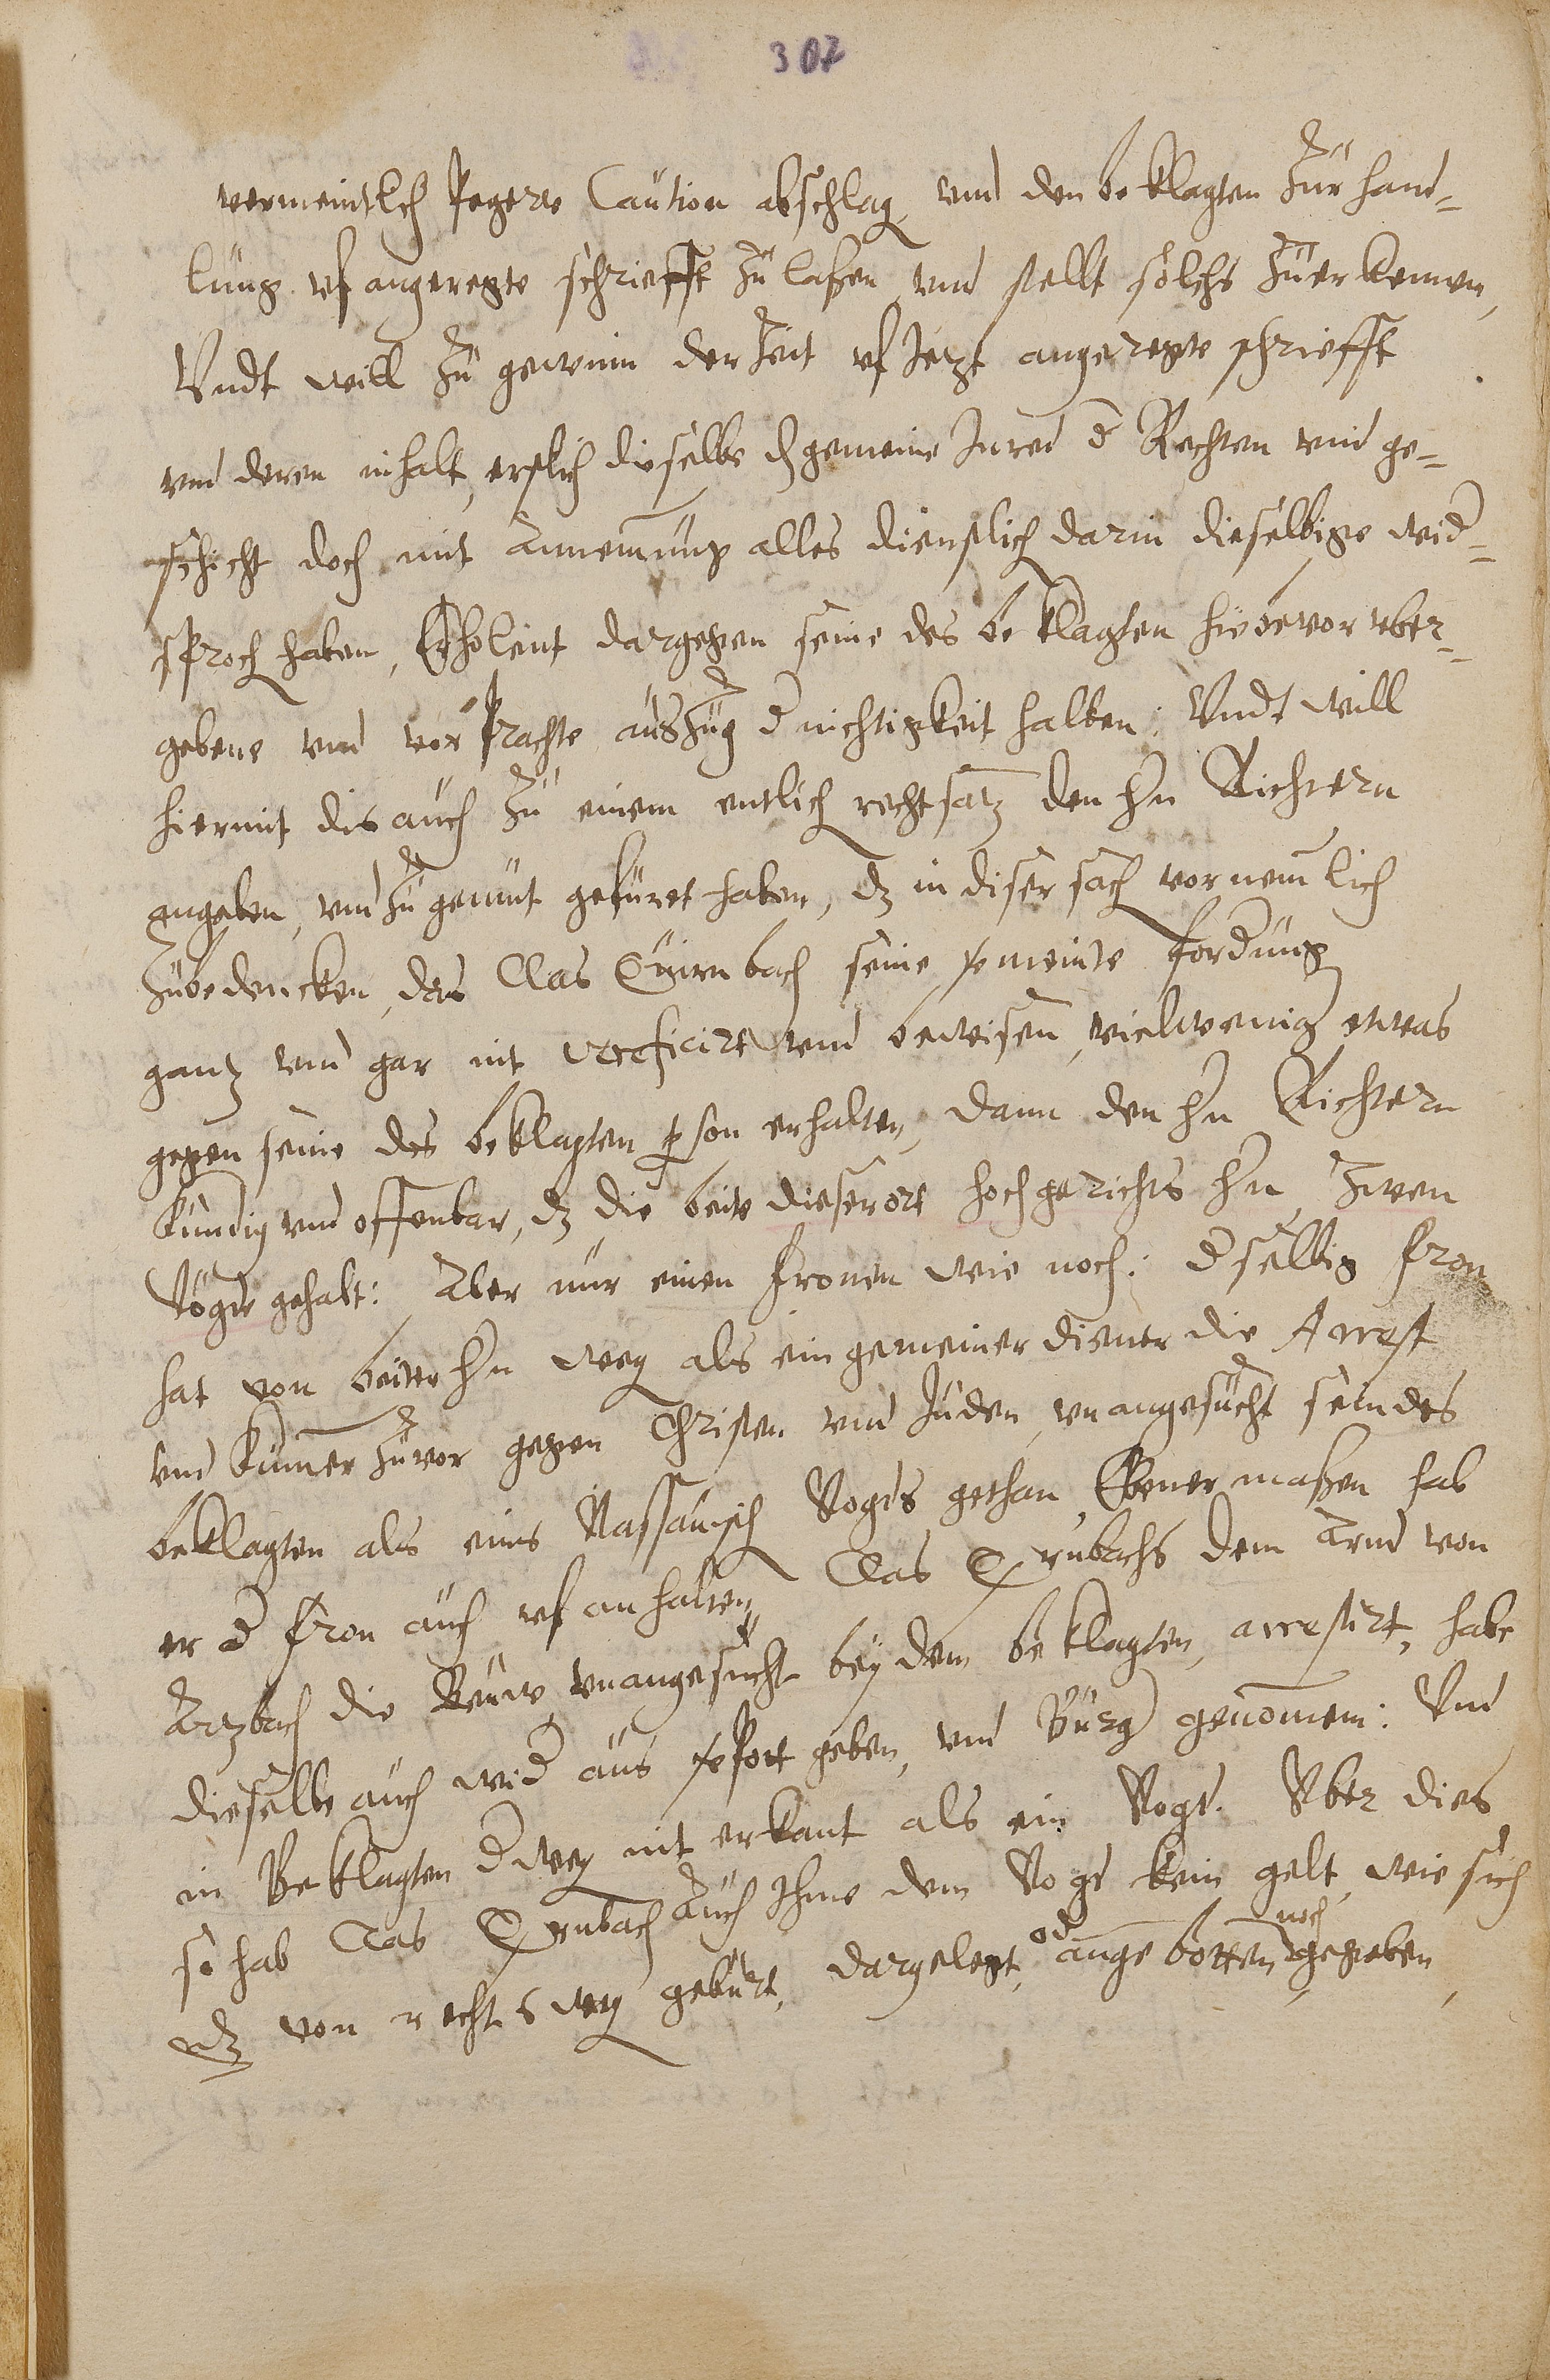 307
vermeintlich begerte Caution abschlag, vnd den beklagten zur hand¬
lung vf angeregte schriefft zu laßen, vnd stellt solchs zuerkennen,
Vndt will zu gewinn der Zeit vf Jetzt angeregte schriefft
vnd deren inhalt, erstlich dieselbe dh gemeine Jnred d Rechten vnd ge¬
schicht doch mit Annemung alles dienstlich darin dieselbige wid¬
sproch haben, Erholent dargegen seine des beklagten hiebevor vber¬
gebene vnd vorbrachte auszug d nichtigkeit halben: Vndt will
hiermit dis auch zu einem entlich rechtsatz den Hn Richtern
angeben, vnd zu gemut gefüret haben, dz in diser sach vornemlich
zubedencken, das Clas Quirnbach seine vermeinte fordung
gantz vnd gar nit verificirt vnd bewisen, vielweniger etwas
gegen seine des beklagten person erhalten, dann den Hn Richtern
kundig vnd offenbar, dz die beite dieser ort hochgerichts Hn, Zwen
Vögte gehabt: Aber nur einen fronen wie noch: dselbig fron
hat von beitter Hn weg als ein gemeiner diener die Arrest
vnd kumer zuvor gegen Christen vnd Juden, vnangesucht sein des
beklagten als eins Nassauisch Vogts gethan, Ebener maßen hab
er d fron auch vf anhalten Clas Qrnbachs dem Arnd von
Arzbach die kuwe vnangesucht bey dem beklagten, arrestirt, habe
dieselbe auch wid aus versort geben, vnd Bürg genommen: Vnd
in Beklagten dweg nit erkant als ein Vogt. Vber dies
so hab Clas Qrnbach Auch Ihme dem Vogt kein gelt, wie sich
dz von rechts weg gebürt, dargelegt, od angebotten, noch gegeben,